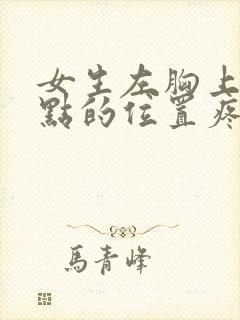 女生左胸上
點的位置疼
馬青峰